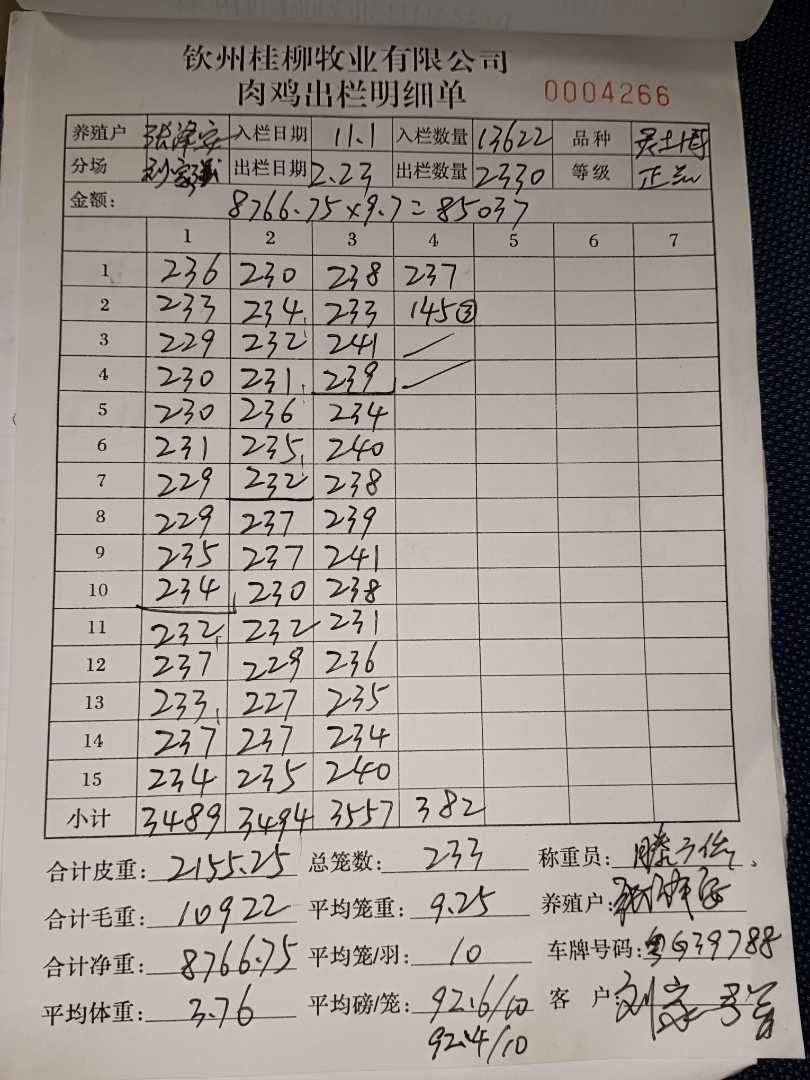 钦州桂柳牧业有限公司
肉鸡出栏明细单 0004266
养殖户 张泽安 入栏日期 11.1 入栏数量 13622 品种
分场 出栏日期 2.23 出栏数量 2330 等级 正
金额: 8766.75×9.7=85037
1 2 3 4 5 6 7
1 236 230 238 237
2 233 234 233 145③
3 229 232 241
4 230 231 239
5 230 236 234
6 231 235 240
7 229 232 238
8 229 237 239
9 235 237 241
10 234 230 238
11 232 232 231
12 237 229 236
13 233 227 235
14 237 237 234
15 234 235 240
小计 3489 3494 3557 382
合计皮重: 2155.25 总笼数: 233 称重员:
合计毛重: 10922 平均笼重: 9.25 养殖户:
合计净重: 8766.75 平均笼/羽: 10 车牌号码: 粤G39788
平均体重: 3.76 平均磅/笼: 92.6/10 客户:
92.4/10